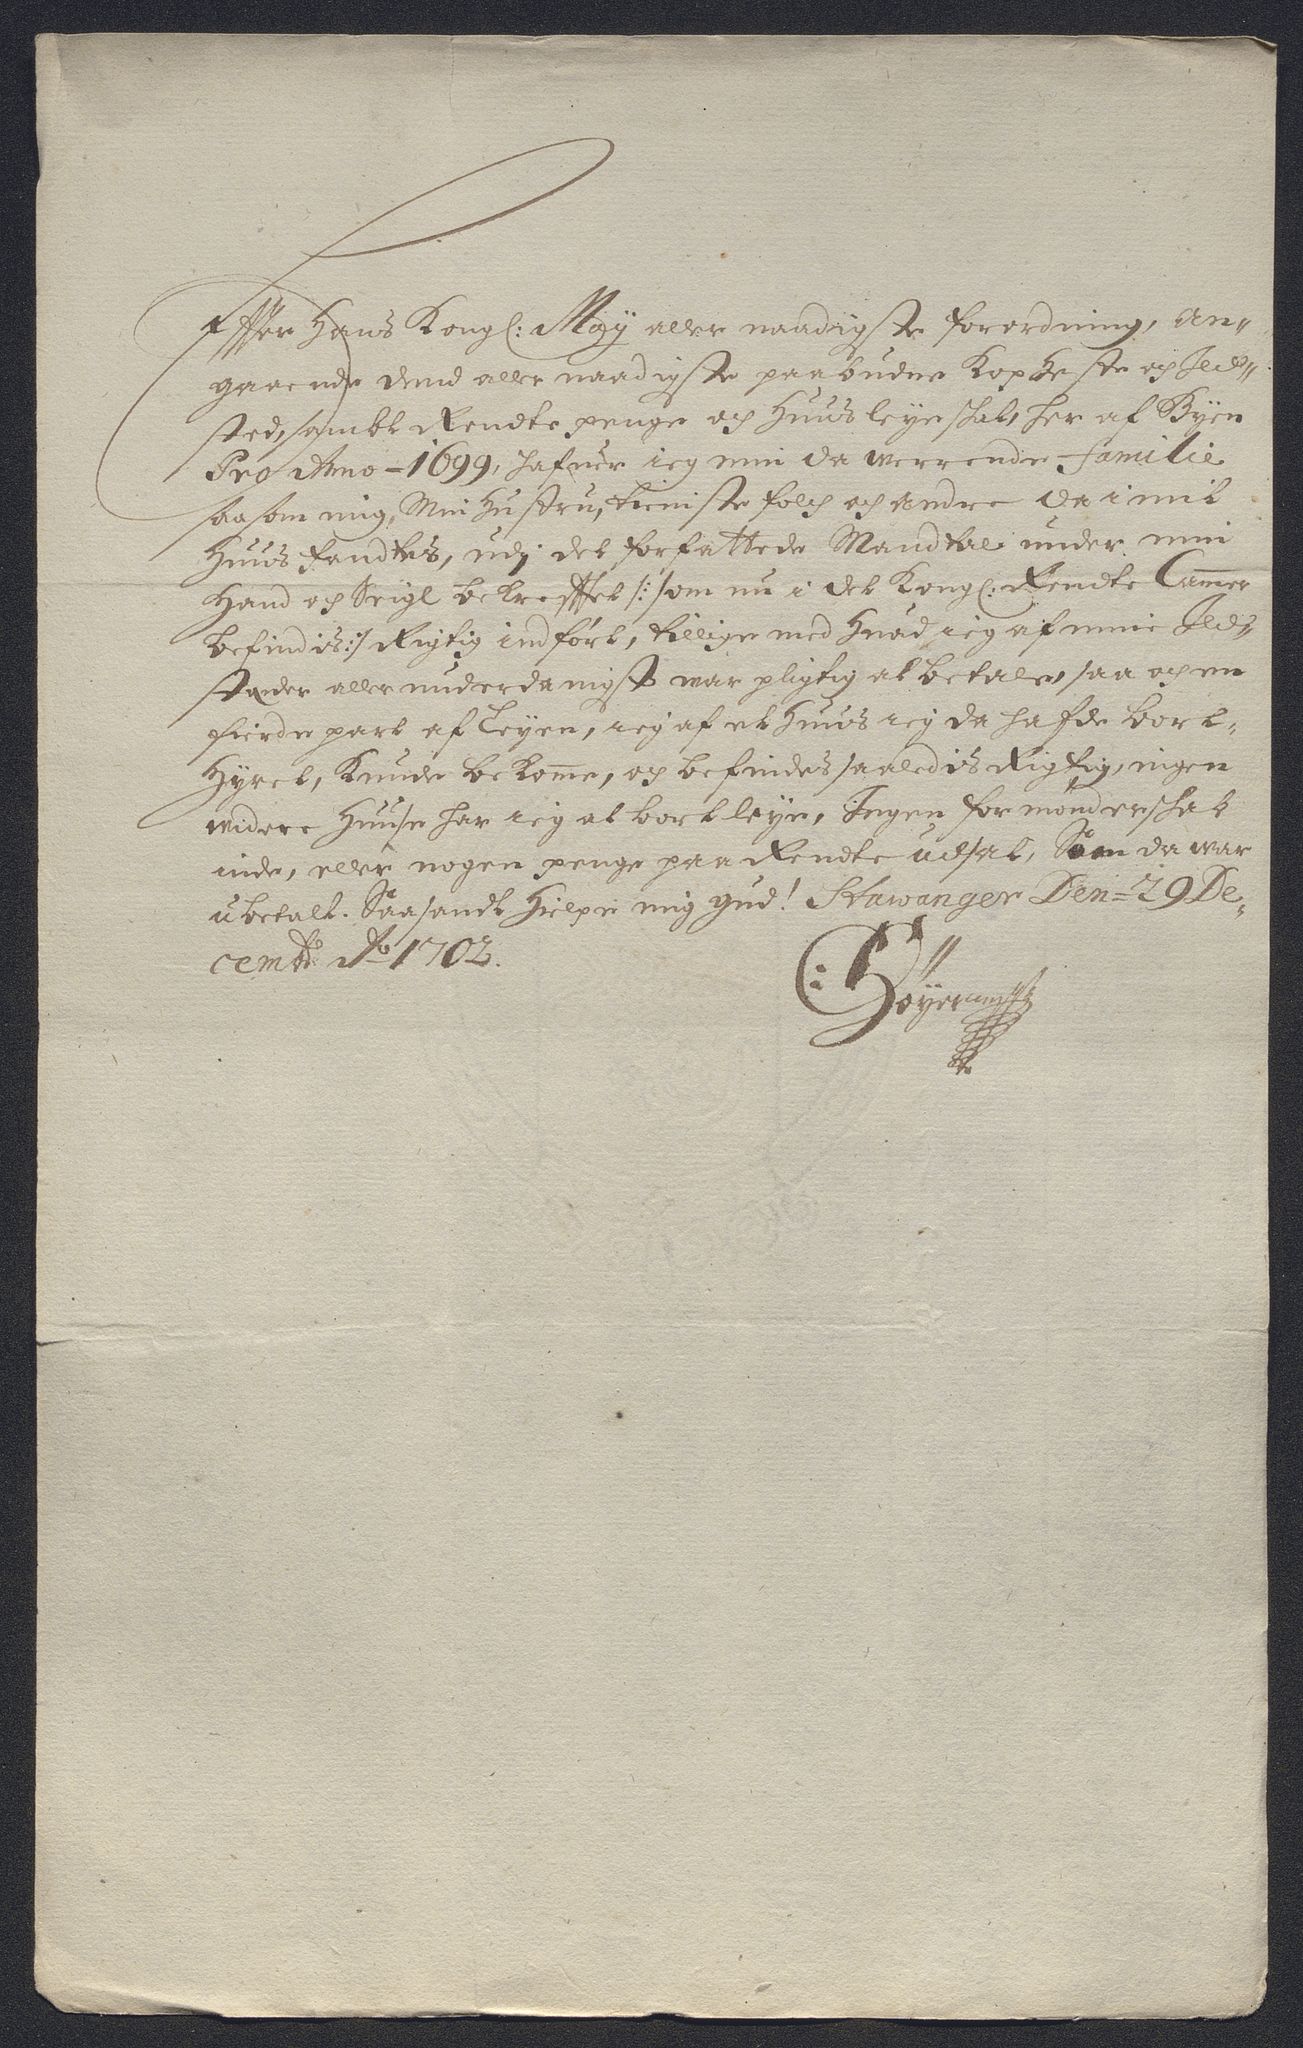 Effter Hans Kongl: Maÿ aller naadigste forordning, an-
gaaende dend aller naadigste paabudne Kop Heste og Ild-
sted, sambt Rendte penge og Huus leye skat, her af Byen
Pro Anno - 1699, hafuer ieg min da werrende familie
saa som mig, Min Hustru, tieniste folch og andre da i mit
Huus fandtes, udj det forfattede Mandtal under min
Hand og Seigl bekrefftet /: som nu i det Kongl: Rendte Cammer
befindis :/ Rigtig indført, tillige med Huad ieg af mine Ild-
stæder aller underdanigst war pligtig at betale, saa og en
fierde part af Leyen, ieg af et Huus ieg da hafde bort-
Hyret, Kunde bekomme, og befindes saaledis Rigtig, ingen
widere Huuse har ieg at bort leye, Ingen formønderskab
inde, eller nogen penge paa Rendte udsat, Som da war
ubetalt. Saa sandt Hielpe mig gud! Stawanger Den = 29 De-
cembr: Ao 1702.
C: Høyer